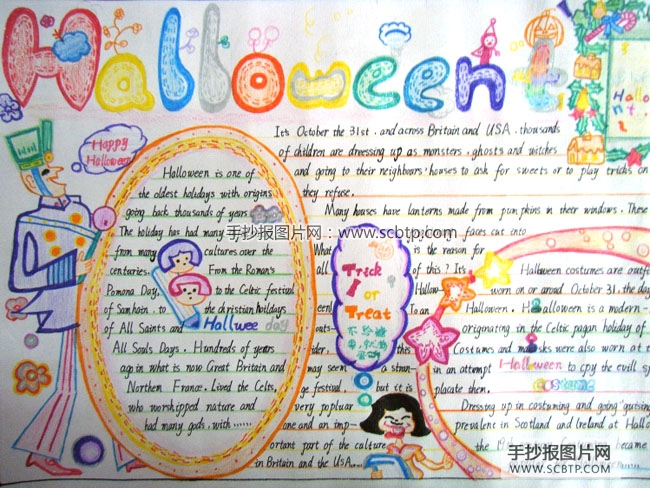 Halloween!
Happy
Halloween
Halloween is one of
the oldest holidays with origins
going back thousands of years
The holiday has had many
from many cultures over the
centuries. From the Roman's
Pomona Day, to the Celtic festival
of Samhain, to the christian holidays
of All Saints and Hallwee day
All Souls Days. Hundreds of years
ago in what is now Great Britain and
Northen France. Lived the Celts,
who worshipped nature and
had many gods. with......
It's October the 31st. and across Britain and USA. thousands
of children are dressing up as monsters. ghosts and witches
and going to their neighbours' houses to ask for sweets or to play tricks on
they refuse.
Many houses have lanterns made from pumpkins in their windows. These
faces cut into
What is the reason for
all of this? It's
Hallow-
To an
this
may seem a stran-
ge festival. but it is
very popluar
one and an imp-
ortant part of the culture
in Britain and the USA....
Trick
or
Treat
不给糖
Halloween costumes are outf
worn on or aroud October 31. the day
Halloween. Halloween is a modern-
originating in the Celtic pagan holiday of
Costume and masks were also worn at t
in an attempt Halloween to cpy the evill sp
costume
placate them.
Dressing up in costuming and going "guising"
prevalent in Scotland and Ireland at Hallo
the 19th became
Hallo
手抄报图片网:www.scbtp.com
手抄报图片网
WWW.SCBTP.COM